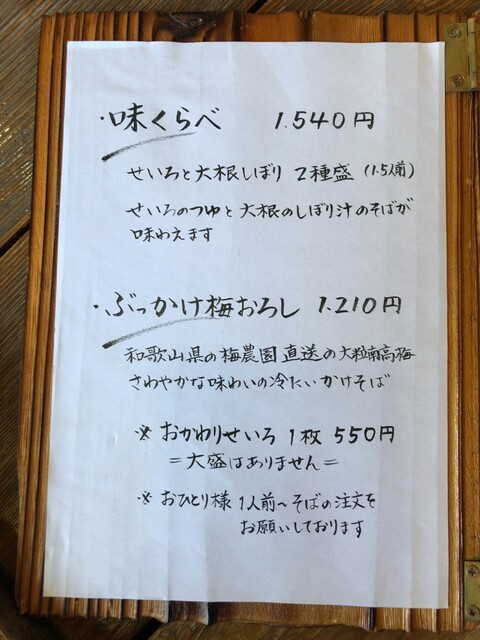 ・味くらべ 1.540円
せいろと大根しぼり 2種盛 (1.5人前)
せいろのつゆと大根のしぼり汁のそばが
味わえます
・ぶっかけ梅おろし 1.210円
和歌山県の梅農園直送の大粒南高梅
さわやかな味わいの冷たいかけそば
※ おかわりせいろ 1枚 550円
=大盛はありません=
※ おひとり様 1人前〜そばの注文を
お願いしております